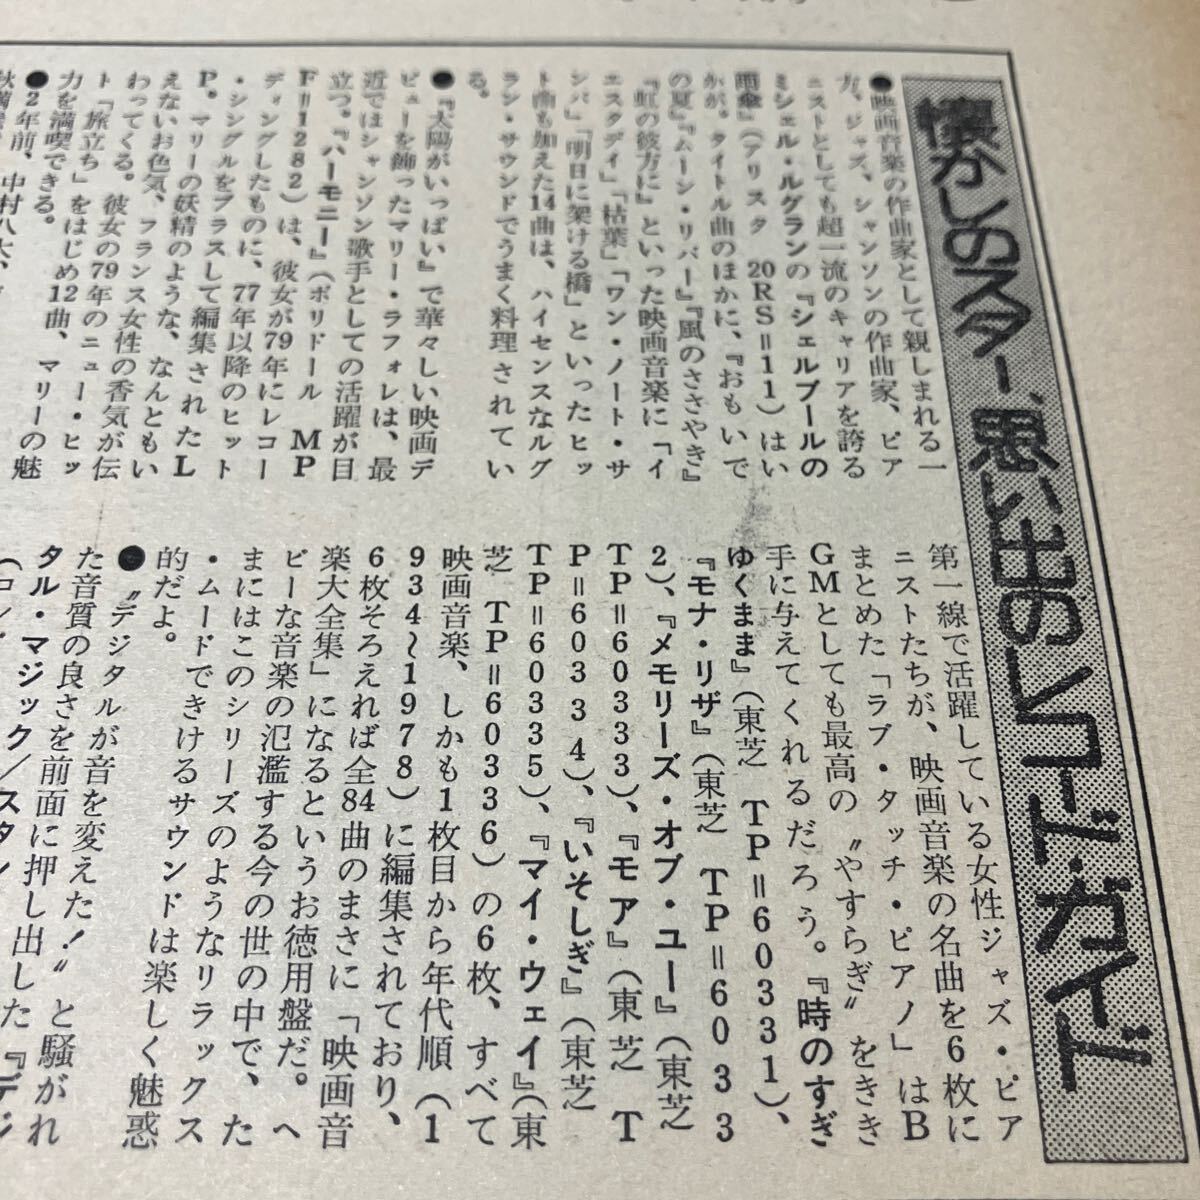 懐かしのスター、思い出のレコード・ガイド
●映画音楽の作曲家として親しまれる一
方、ジャズ、シャンソンの作曲家、ピア
ニストとしても超一流のキャリアを誇る
ミシェル・ルグランの『シェルブールの
雨傘』(アリスタ 20RS=11)はい
かが。タイトル曲のほかに、『おもいで
の夏』『ムーン・リバー』『風のささやき』
『虹の彼方に』といった映画音楽に「イ
エスタデイ」「枯葉」「ワン・ノート・サ
ンバ」「明日に架ける橋」といったヒッ
ト曲も加えた14曲は、ハイセンスなルグ
ラン・サウンドでうまく料理されてい
る。
●『太陽がいっぱい』で華々しい映画デ
ビューを飾ったマリー・ラフォレは、最
近ではシャンソン歌手としての活躍が目
立つ。『ハーモニー』(ポリドール MP
F=1282)は、彼女が79年にレコー
ディングしたものに、77年以降のヒット
・シングルをプラスして編集されたL
P。マリーの妖精のような、なんともい
えないお色気、フランス女性の香気が伝
わってくる。彼女の79年のニュー・ヒッ
ト「旅立ち」をはじめ12曲、マリーの魅
力を満喫できる。
●2年前、中村八大、
第一線で活躍している女性ジャズ・ピア
ニストたちが、映画音楽の名曲を6枚に
まとめた「ラブ・タッチ・ピアノ」はB
GMとしても最高の〝やすらぎ〟をきき
手に与えてくれるだろう。『時のすぎ
ゆくまま』(東芝 TP=60331)、
『モナ・リザ』(東芝 TP=6033
2)、『メモリーズ・オブ・ユー』(東芝
TP=60333)、『モア』(東芝 T
P=60334)、『いそしぎ』(東芝
TP=60335)、『マイ・ウェイ』(東
芝 TP=60336)の6枚、すべて
映画音楽、しかも1枚目から年代順(1
934〜1978)に編集されており、
6枚そろえれば全84曲のまさに「映画音
楽大全集」になるというお徳用盤だ。ヘ
ビーな音楽の氾濫する今の世の中で、た
まにはこのシリーズのようなリラックス
・ムードできけるサウンドは楽しく魅惑
的だよ。
●〝デジタルが音を変えた!〟と騒がれ
た音質の良さを前面に押し出した『デジ
タル・マジック/スタン